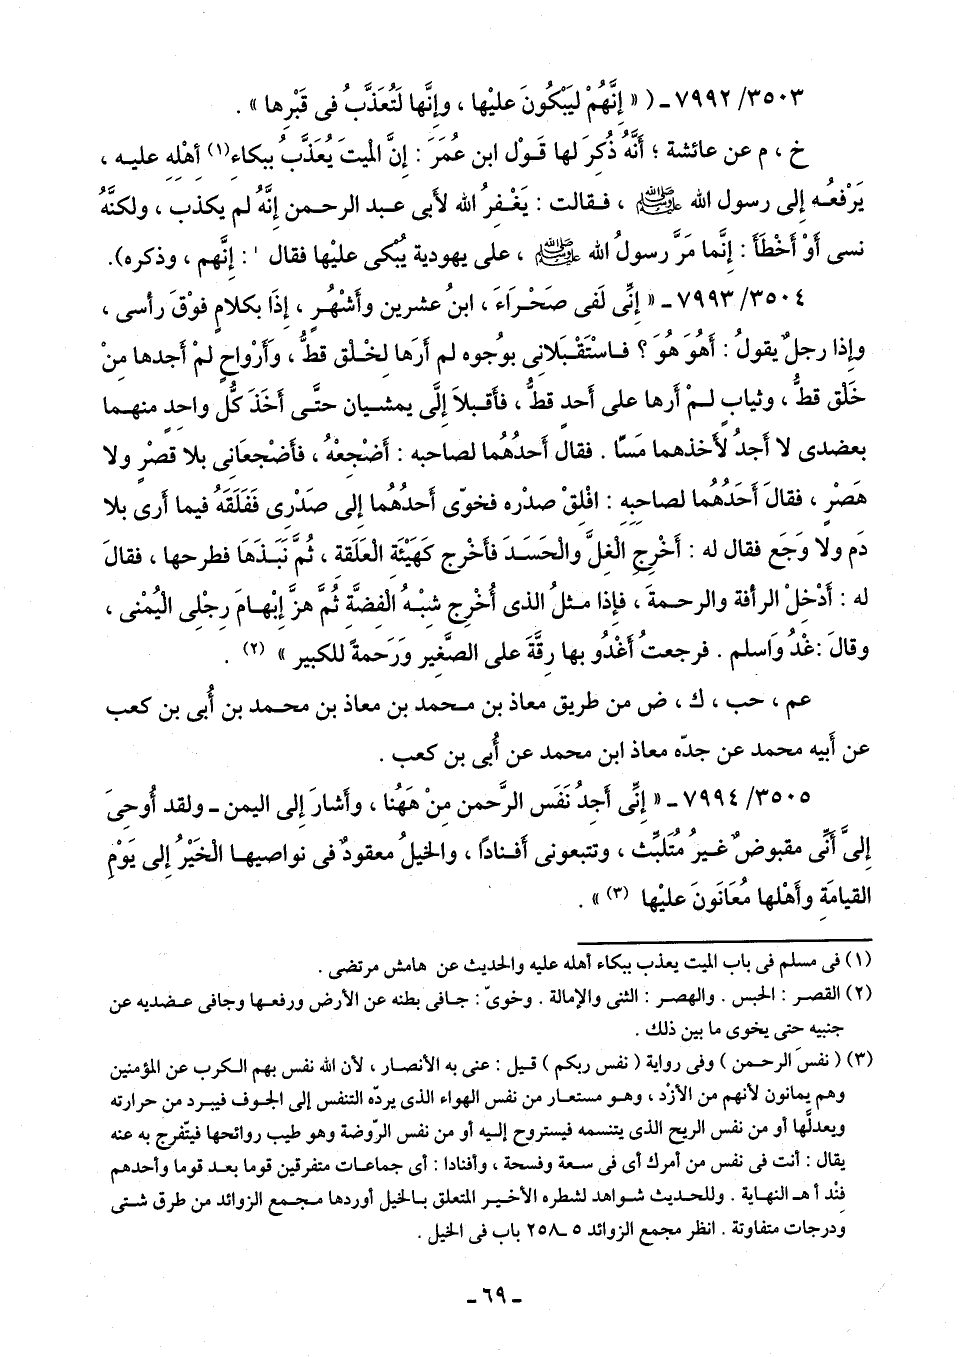 ٣٥٠٣/ ٧٩٩٢ـ ( « إِنَّهُمْ لَيَبْكُونَ عليْها ، وإِنَّها لَتُعَذَّبُ فى قَبْرِها » .
خ ، م عن عائشة ؛ أَنَّهُ ذُكِرَ لها قَوْل ابن عُمَرَ : إِنَّ الميتَ يُعَذَّبُ ببكاءِ(١) أَهْلِهِ عليه ،
يَرْفعُه إِلى رسول الله ﷺ ، فقالت : يَغْفِرُ الله لأَبى عبد الرحمن إِنَّهُ لم يكذب ، ولكنَّهُ
نسى أَوْ أَخْطَأَ : إِنَّما مَرَّ رسولُ الله ﷺ ، على يهودية يُبْكى عليْها فقال : إِنَّهم ، وذكره).
٣٥٠٤/ ٧٩٩٣ـ « إِنِّى لَفى صَحْراءَ ، ابنُ عشرين وأَشْهُرٍ ، إِذَا بكلامٍ فوْقَ رأسى ،
وإِذا رجلٌ يقولُ : أَهُوَ هُوَ ؟ فاسْتَقْبَلانى بوُجوه لم أَرَها لخلْق قطُّ ، وَأَرْواحٍ لمْ أَجدها مِنْ
خَلْق قطُّ ، وثيابٍ لمْ أرها على أَحد قطُّ ، فأَقْبلاَ إِلَّى يمشيان حتَّى أَخَذَ كُلُّ واحدٍ منهما
بعضدى لا أَجدُ لأَخذهما مَسًا . فقال أَحدُهُما لصاحبه : أَضْجِعْهُ ، فأَضْجعَانى بلا قصْرٍ ولا
هَصْرٍ ، فقالَ أَحَدُهُما لصاحبِهِ : افْلِقْ صدْره فخوّى أَحدُهُما إلى صَدْرى فَفَلَقَهُ فيما أَرى بلا
دَمٍ ولا وَجَعٍ فقال له : أَخْرِجِ الْغلَّ والْحَسَدَ فأَخْرج كَهَيْئَةِ الْعَلَقَة ، ثُمَّ نَبَذَهَا فطرحها ، فقالَ
له : أَدْخِلْ الرأفة والرحمةَ ، فإذا مثلُ الذى أُخْرِج شبْهُ الْفضَّة ثُمَّ هزَّ إِبْهامَ رِجْلى الْيُمْنى ،
وقالَ :غْدُ وَاسلم . فرجعتُ أَغْدُو بها رقَّةَ على الصَّغيرِ وَرَحمةً للكبير » (٢) .
عم ، حب ، ك ، ض من طريق معاذ بن محمد بن معاذ بن محمد بن أُبى بن كعب
عن أَبيه محمد عن جدّه معاذ ابن محمد عن أُبى بن كعب .
٣٥٠٥/ ٧٩٩٤ـ « إِنِّى أَجدُ نَفَس الرَّحمن مِنْ هَهُنا ، وأَشارَ إِلى اليمن ـ ولقد أُوحىَ
إِلىَّ أَنِّى مقبوضٌ غيرُ مُتَلبِّث ، وتتبعونى أَفنادًا ، والخيلُ معقودٌ فى نواصيها الْخَيْرُ إِلى يَوْمِ
القيامَةِ وأَهْلها مُعَانَونَ عليْها (٣) » .
(١) فى مسلم فى باب الميت يعذب ببكاء أهله عليه والحديث عن هامش مرتضى .
(٢) القصر : الحبس . والهصر : الثنى والإمالة . وخوىّ : جافى بطنه عن الأرض ورفعها وجافى عضديه عن
جنبيه حتى يخوى ما بين ذلك .
(٣) ( نفسَ الرحمن ) وفى رواية ( نفس ربكم ) قيل : عنى به الأنصار ، لأن الله نفس بهم الكرب عن المؤمنين
وهم يمانون لأنهم من الأزْد ، وهو مستعار من نفس الهواء الذى يردّه التنفس إلى الجوف فيبرد من حرارته
ويعدلَّها أو من نفس الريح الذى يتنسمه فيستروح إليه أو من نفس الرّوضة وهو طيب روائحها فيتّفرج به عنه
يقال : أنت فى نفس من أمرك أى فى سعة وفسحة ، وأفنادا : أى جماعات متفرقين قوما بعد قوما وأحدهم
فِنْد أ هـ النهاية . وللحديث شواهد لشطره الأخير المتعلق بالخيل أوردها مجمع الزوائد من طرق شتى
ودرجات متفاوتة . انظر مجمع الزوائد ٥ـ ٢٥٨ باب فى الخيل .
ـ ٦٩ ـ